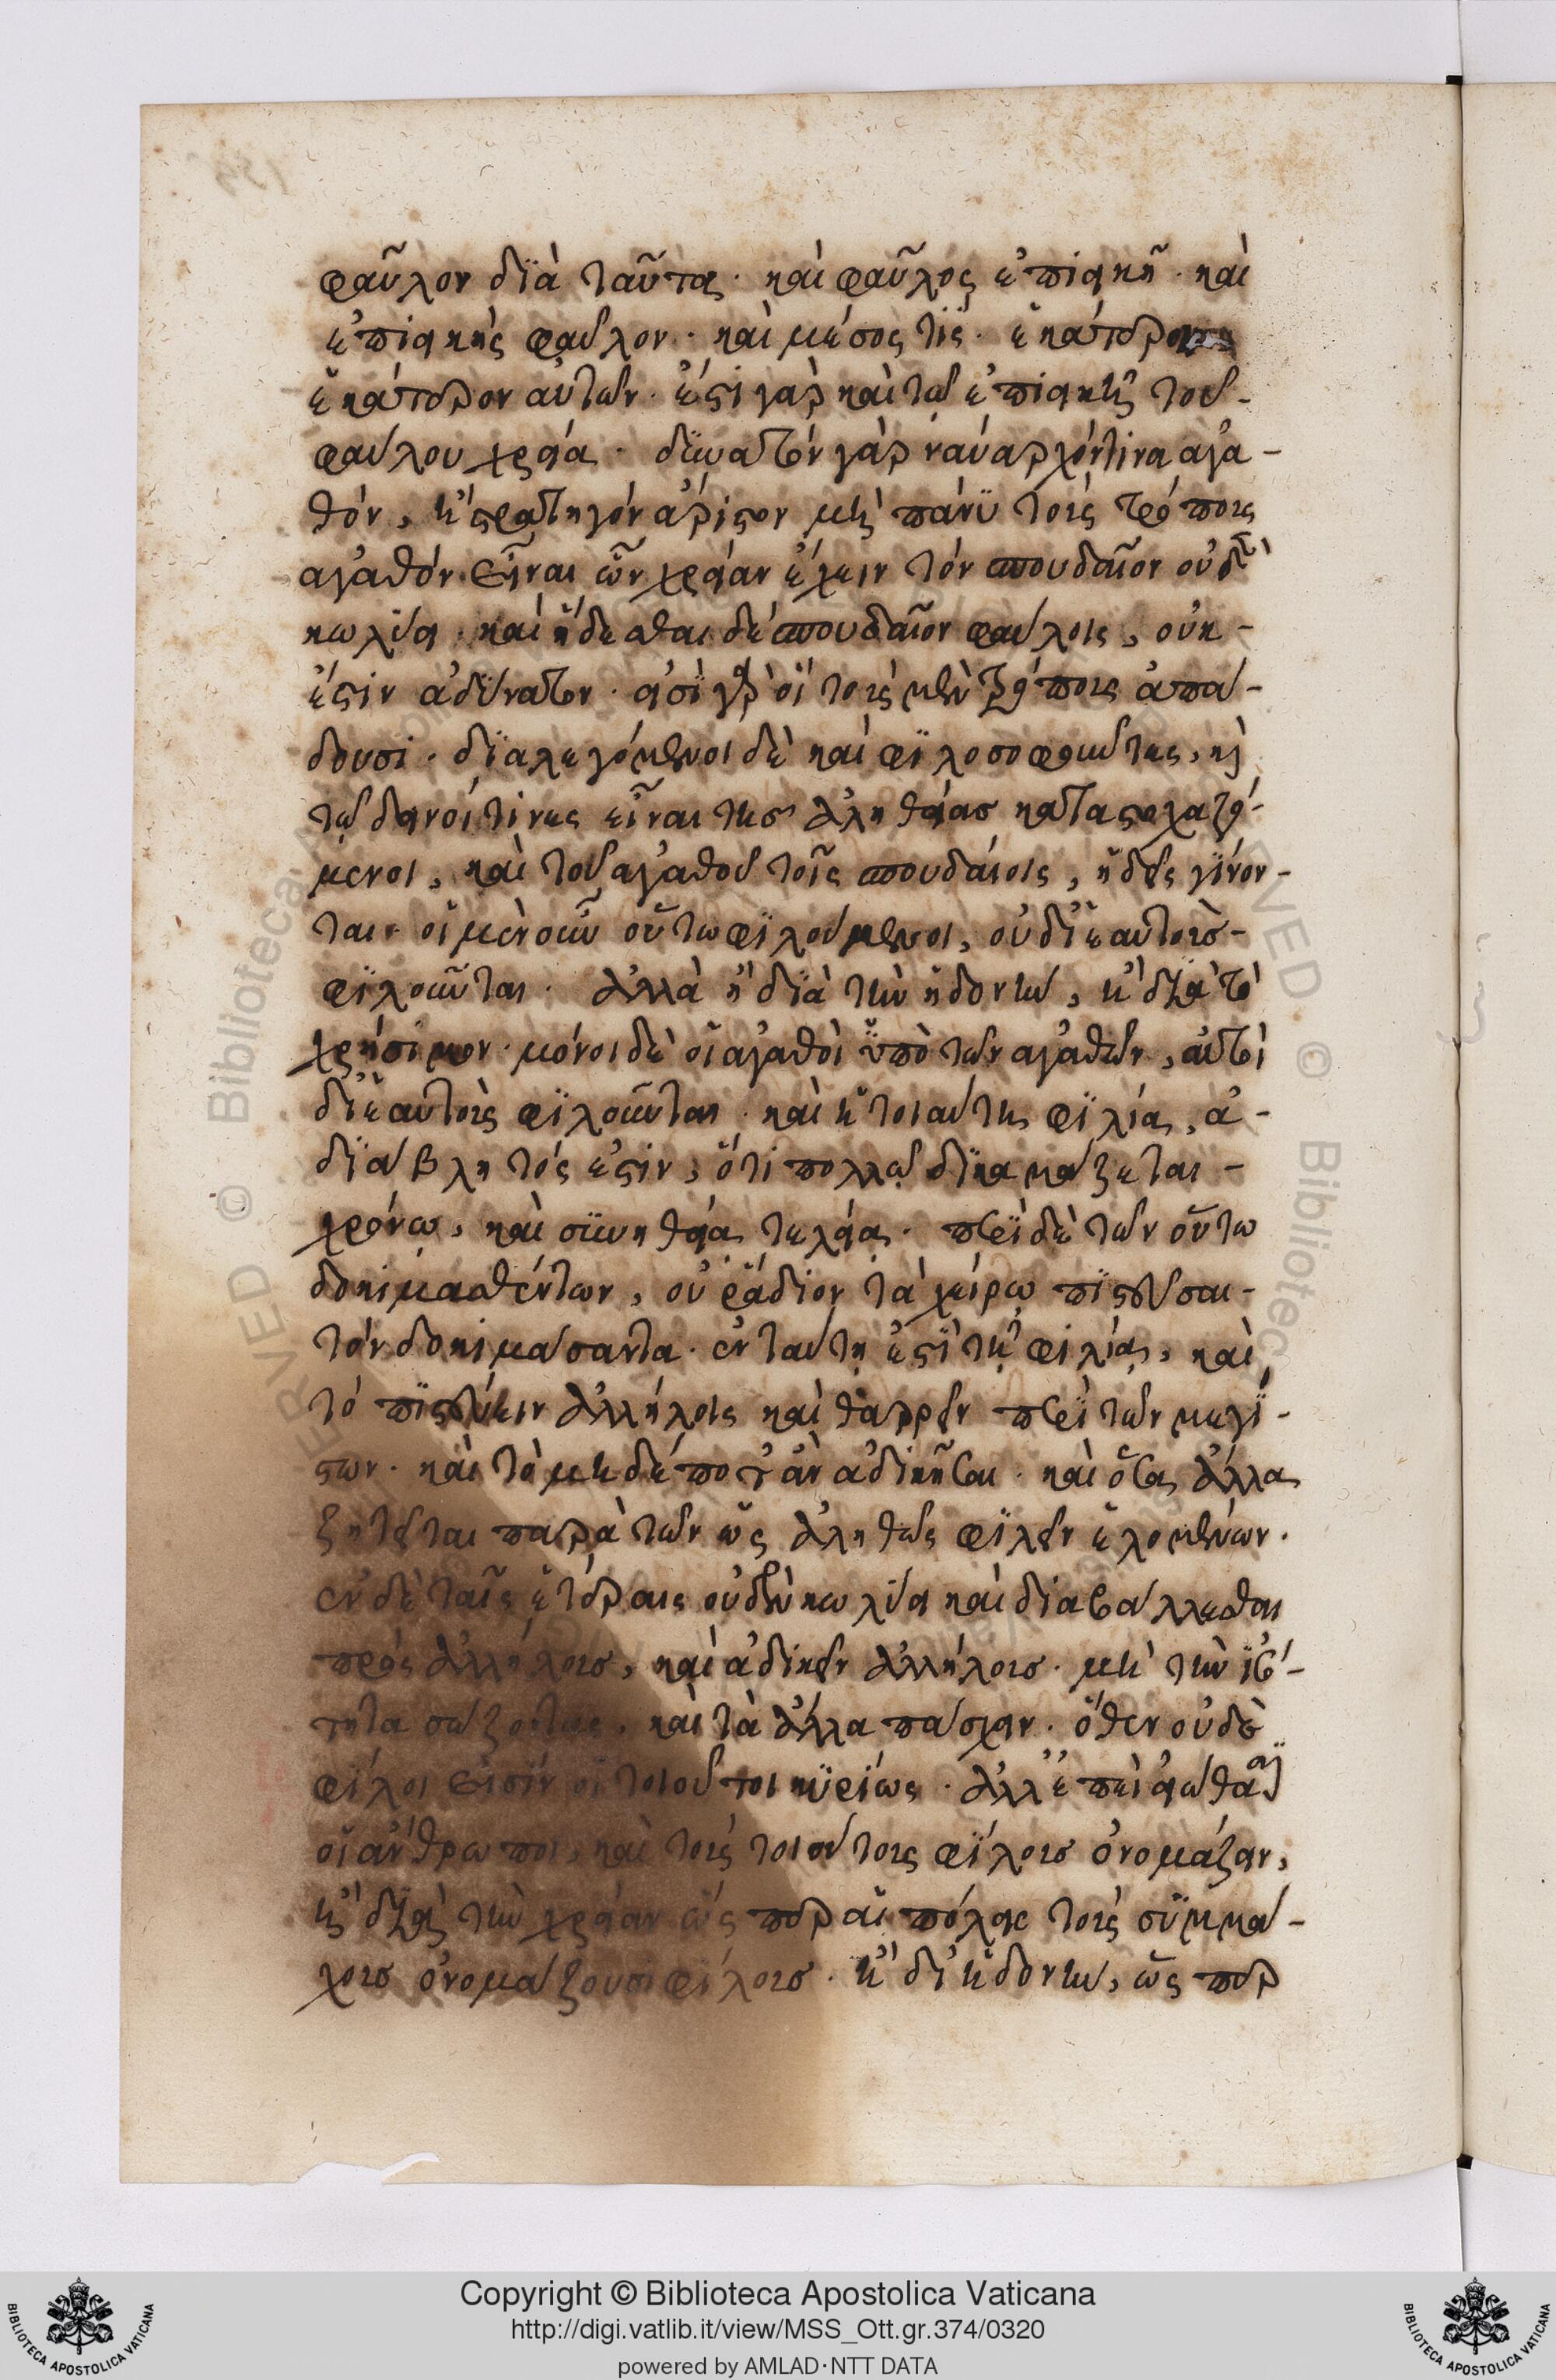 φαῦλον διὰ ταῦτα· καὶ φαῦλος ἐπιεικῆ· καὶ
ἐπιεικὴς φαῦλον· καὶ μέσος τίς· ἑκάτερον
ἑκάτερον αὐτῶν· ἔστι γὰρ καὶ τῶ ἐπιεικῆ τοῦ-
φαύλου χρεία· δυνατὸν γὰρ ναύαρχόν τινα ἀγα-
θόν, ἢ στρατηγὸν ἄριστον μὴ πάνυ τοὺς τρόπους
ἀγαθὸν εἶναι ὧν χρείαν ἔχειν τὸν σπουδαῖον οὐδὲν
κωλύει· καὶ ἥδεσθαι δὲ σπουδαῖον φαύλοις, οὐκ-
ἔστιν ἀδύνατον· εἰσὶ γὰρ οἳ τοὺς μὲν τρόπους ἀπᾴ-
δουσι· διαλεγόμενοι δὲ καὶ φιλοσοφοῦντες, καὶ
τῶ δεινοί τινες εἶναι τῆς ἀληθείας καταστοχαζό-
μενοι, καὶ τοῦ ἀγαθοῦ τοῖς σπουδαίοις, ἡδεῖς γίνον-
ται· οἱ μὲν οὖν οὕτω φιλούμενοι, οὐ δι' ἑαυτοὺς-
φιλοῦνται· ἀλλὰ ἢ διὰ τὴν ἡδονὴν, ἢ διὰ τὸ
χρήσιμον· μόνοι δὲ οἱ ἀγαθοὶ ὑπὸ τῶν ἀγαθῶν, αὐτοὶ
δι' ἑαυτοὺς φιλοῦνται· καὶ ἡ τοιαύτη φιλία, ἀ-
διάβλητός ἐστιν, ὅτι πολλῷ δοκιμάζεται-
χρόνω, καὶ συνηθεία τελεία· περὶ δὲ τῶν οὕτω
δοκιμασθέντων, οὐ ῥάδιον τὰ χείρω πιστεῦσαι-
τὸν δοκιμάσαντα· ἐν ταύτη ἐστὶ τῇ φιλίᾳ, καὶ
τὸ πιστεύειν ἀλλήλοις καὶ θαρρεῖν περὶ τῶν μεγί-
στων· καὶ τὸ μηδέποτ' ἂν ἀδικῆσαι· καὶ ὅσα ἄλλα
ζητεῖται παρὰ τῶν ὡς ἀληθῶς φιλεῖν ἑλομένων·
ἐν δὲ ταῖς ἑτέραις οὐδὲν κωλύει καὶ διαβάλλεσθαι
πρὸς ἀλλήλους, καὶ ἀδικεῖν ἀλλήλους· μὴ τὴν ἰσό-
τητα σώζοντας, καὶ τὰ ἄλλα πάσχειν· ὅθεν οὐδὲ
φίλοι εἰσὶν οἱ τοιοῦτοι κυρίως· ἀλλ' ἐπεὶ εἰώθασι
οἱ ἄνθρωποι, καὶ τοὺς τοιούτους φίλους ὀνομάζειν,
ἢ διὰ τὴν χρείαν ὥς περ αἱ πόλεις τοὺς συμμά-
χους ὀνομάζουσι φίλους· ἢ δι' ἡδονὴν, ὥς περ
Copyright © Biblioteca Apostolica Vaticana
http://digi.vatlib.it/view/MSS_Ott.gr.374/0320
powered by AMLAD·NTT DATA